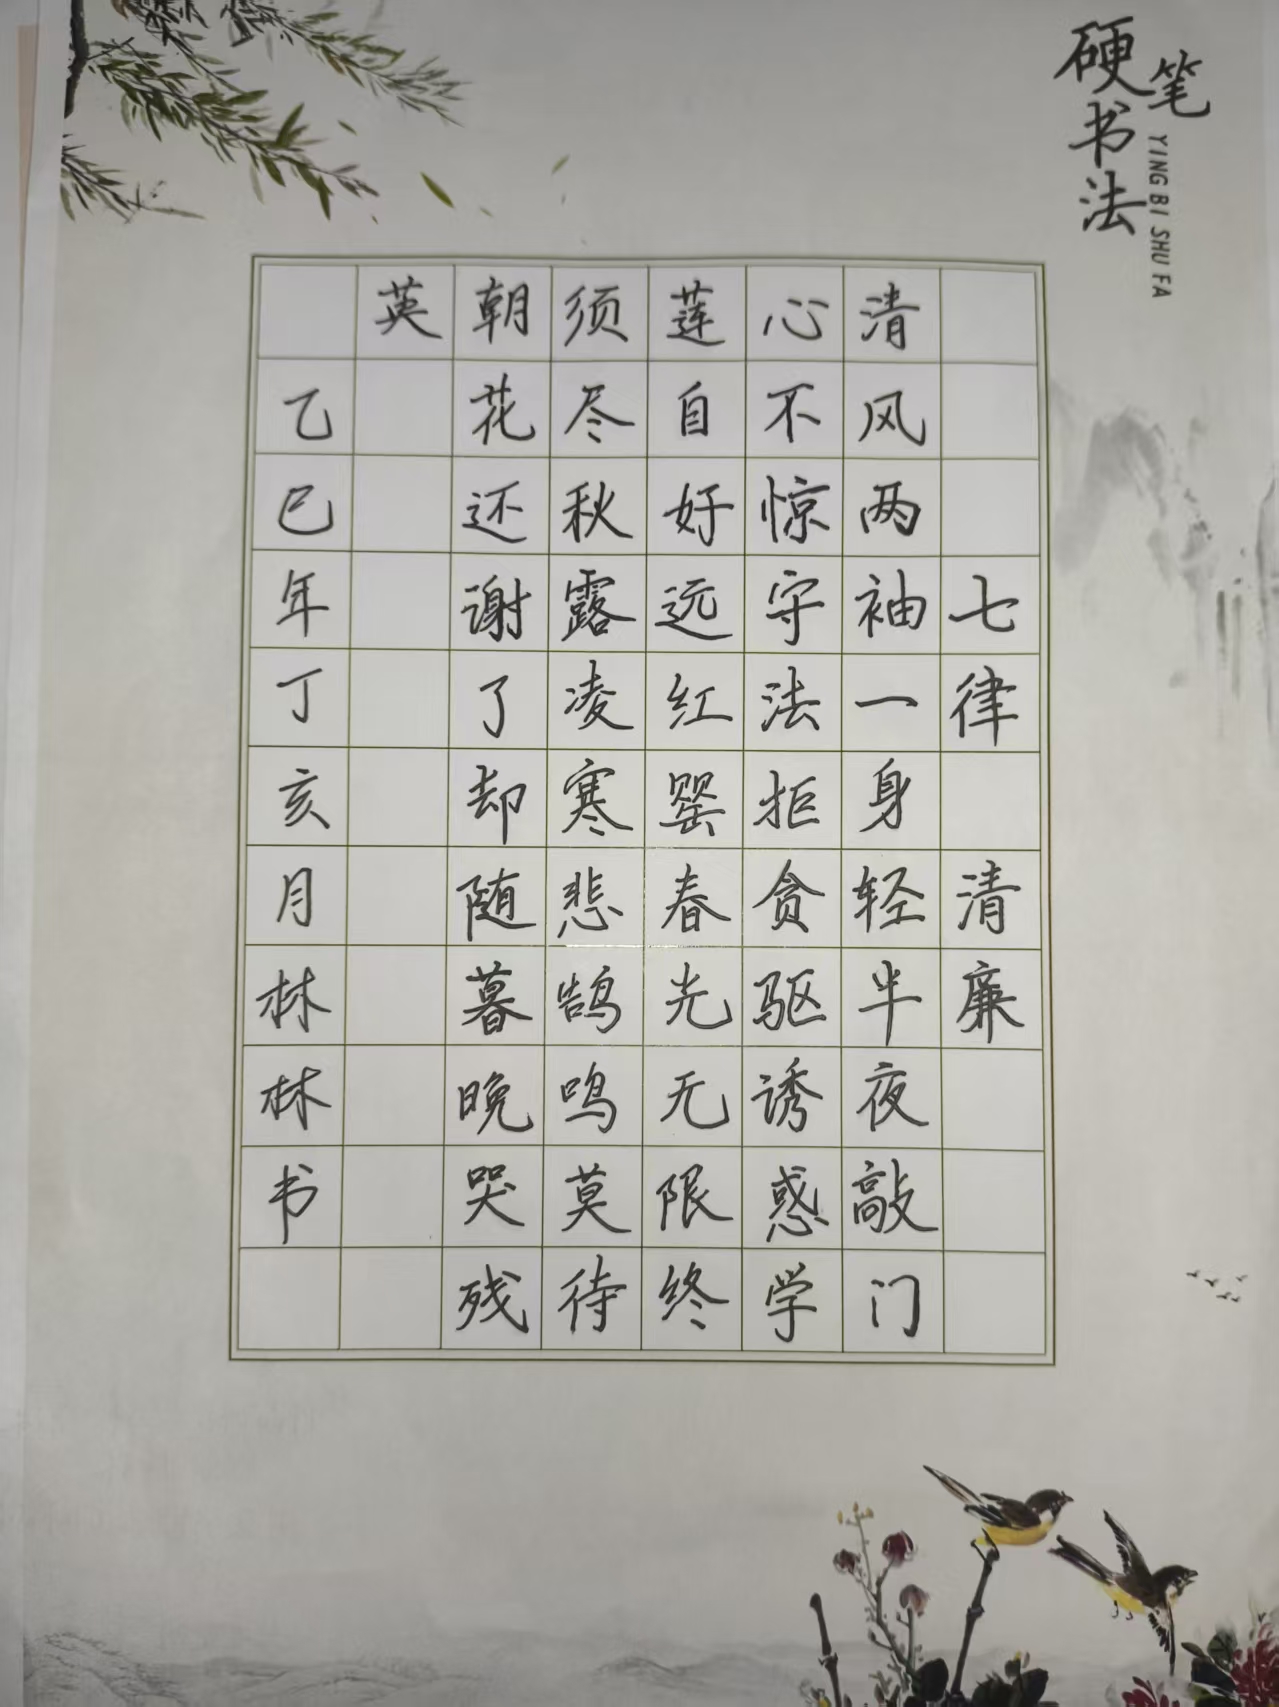 硬笔书法
YING BI SHU FA
七律 清廉
清风两袖一身轻半夜敲门
心不惊守法拒贪驱诱惑学
莲自好远红罂春光无限终
须尽秋露凌寒悲鹄鸣莫待
朝花还谢了却随暮晚哭残
英
乙巳年丁亥月林林书